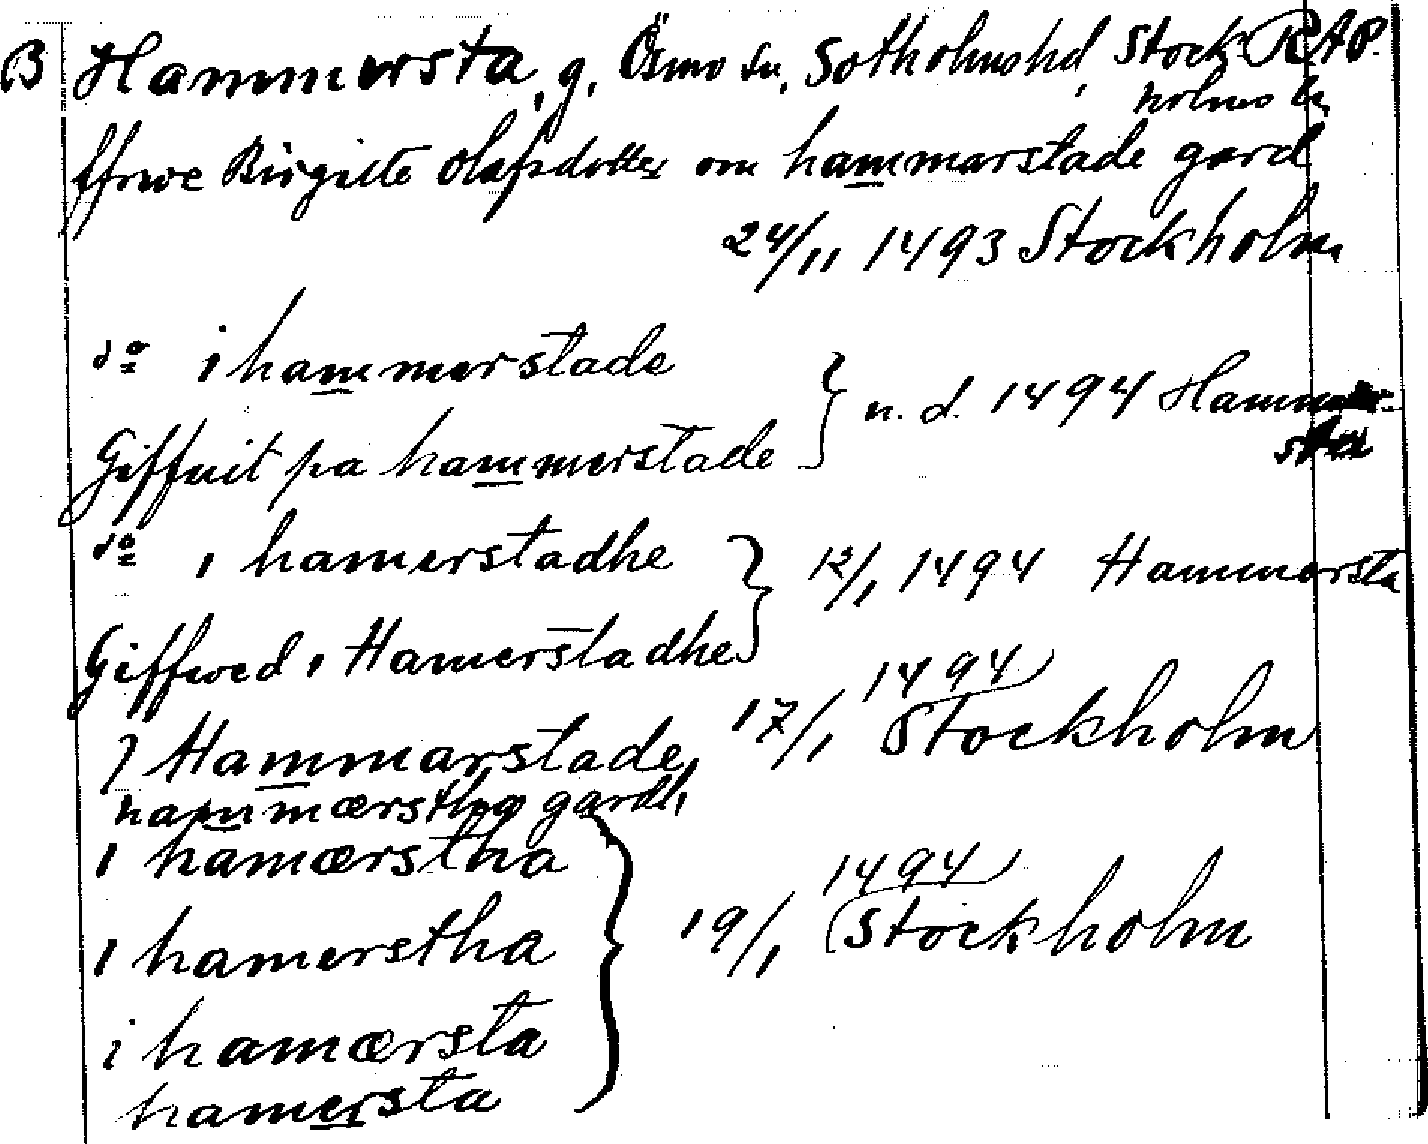 B Hammersta, g, Ösmo sn, Sotholms hd, Stock- RAP.
holms ln
ffrwe Birgitte olafsdotter om hammarstade gard
24/11 1493 Stockholm
do i hammerstade
Giffuit pa hammerstade } u. d. 1494 Hammer-
sta
do i hamerstadhe } 12/1 1494 Hammersta
Giffwed i Hamerstadhe
J Hammarstade 17/1 1494 Stockholm
hammærstha gardh
i hamærstha
i hamerstha } 19/1 1494 Stockholm
i hamærsta
hamersta